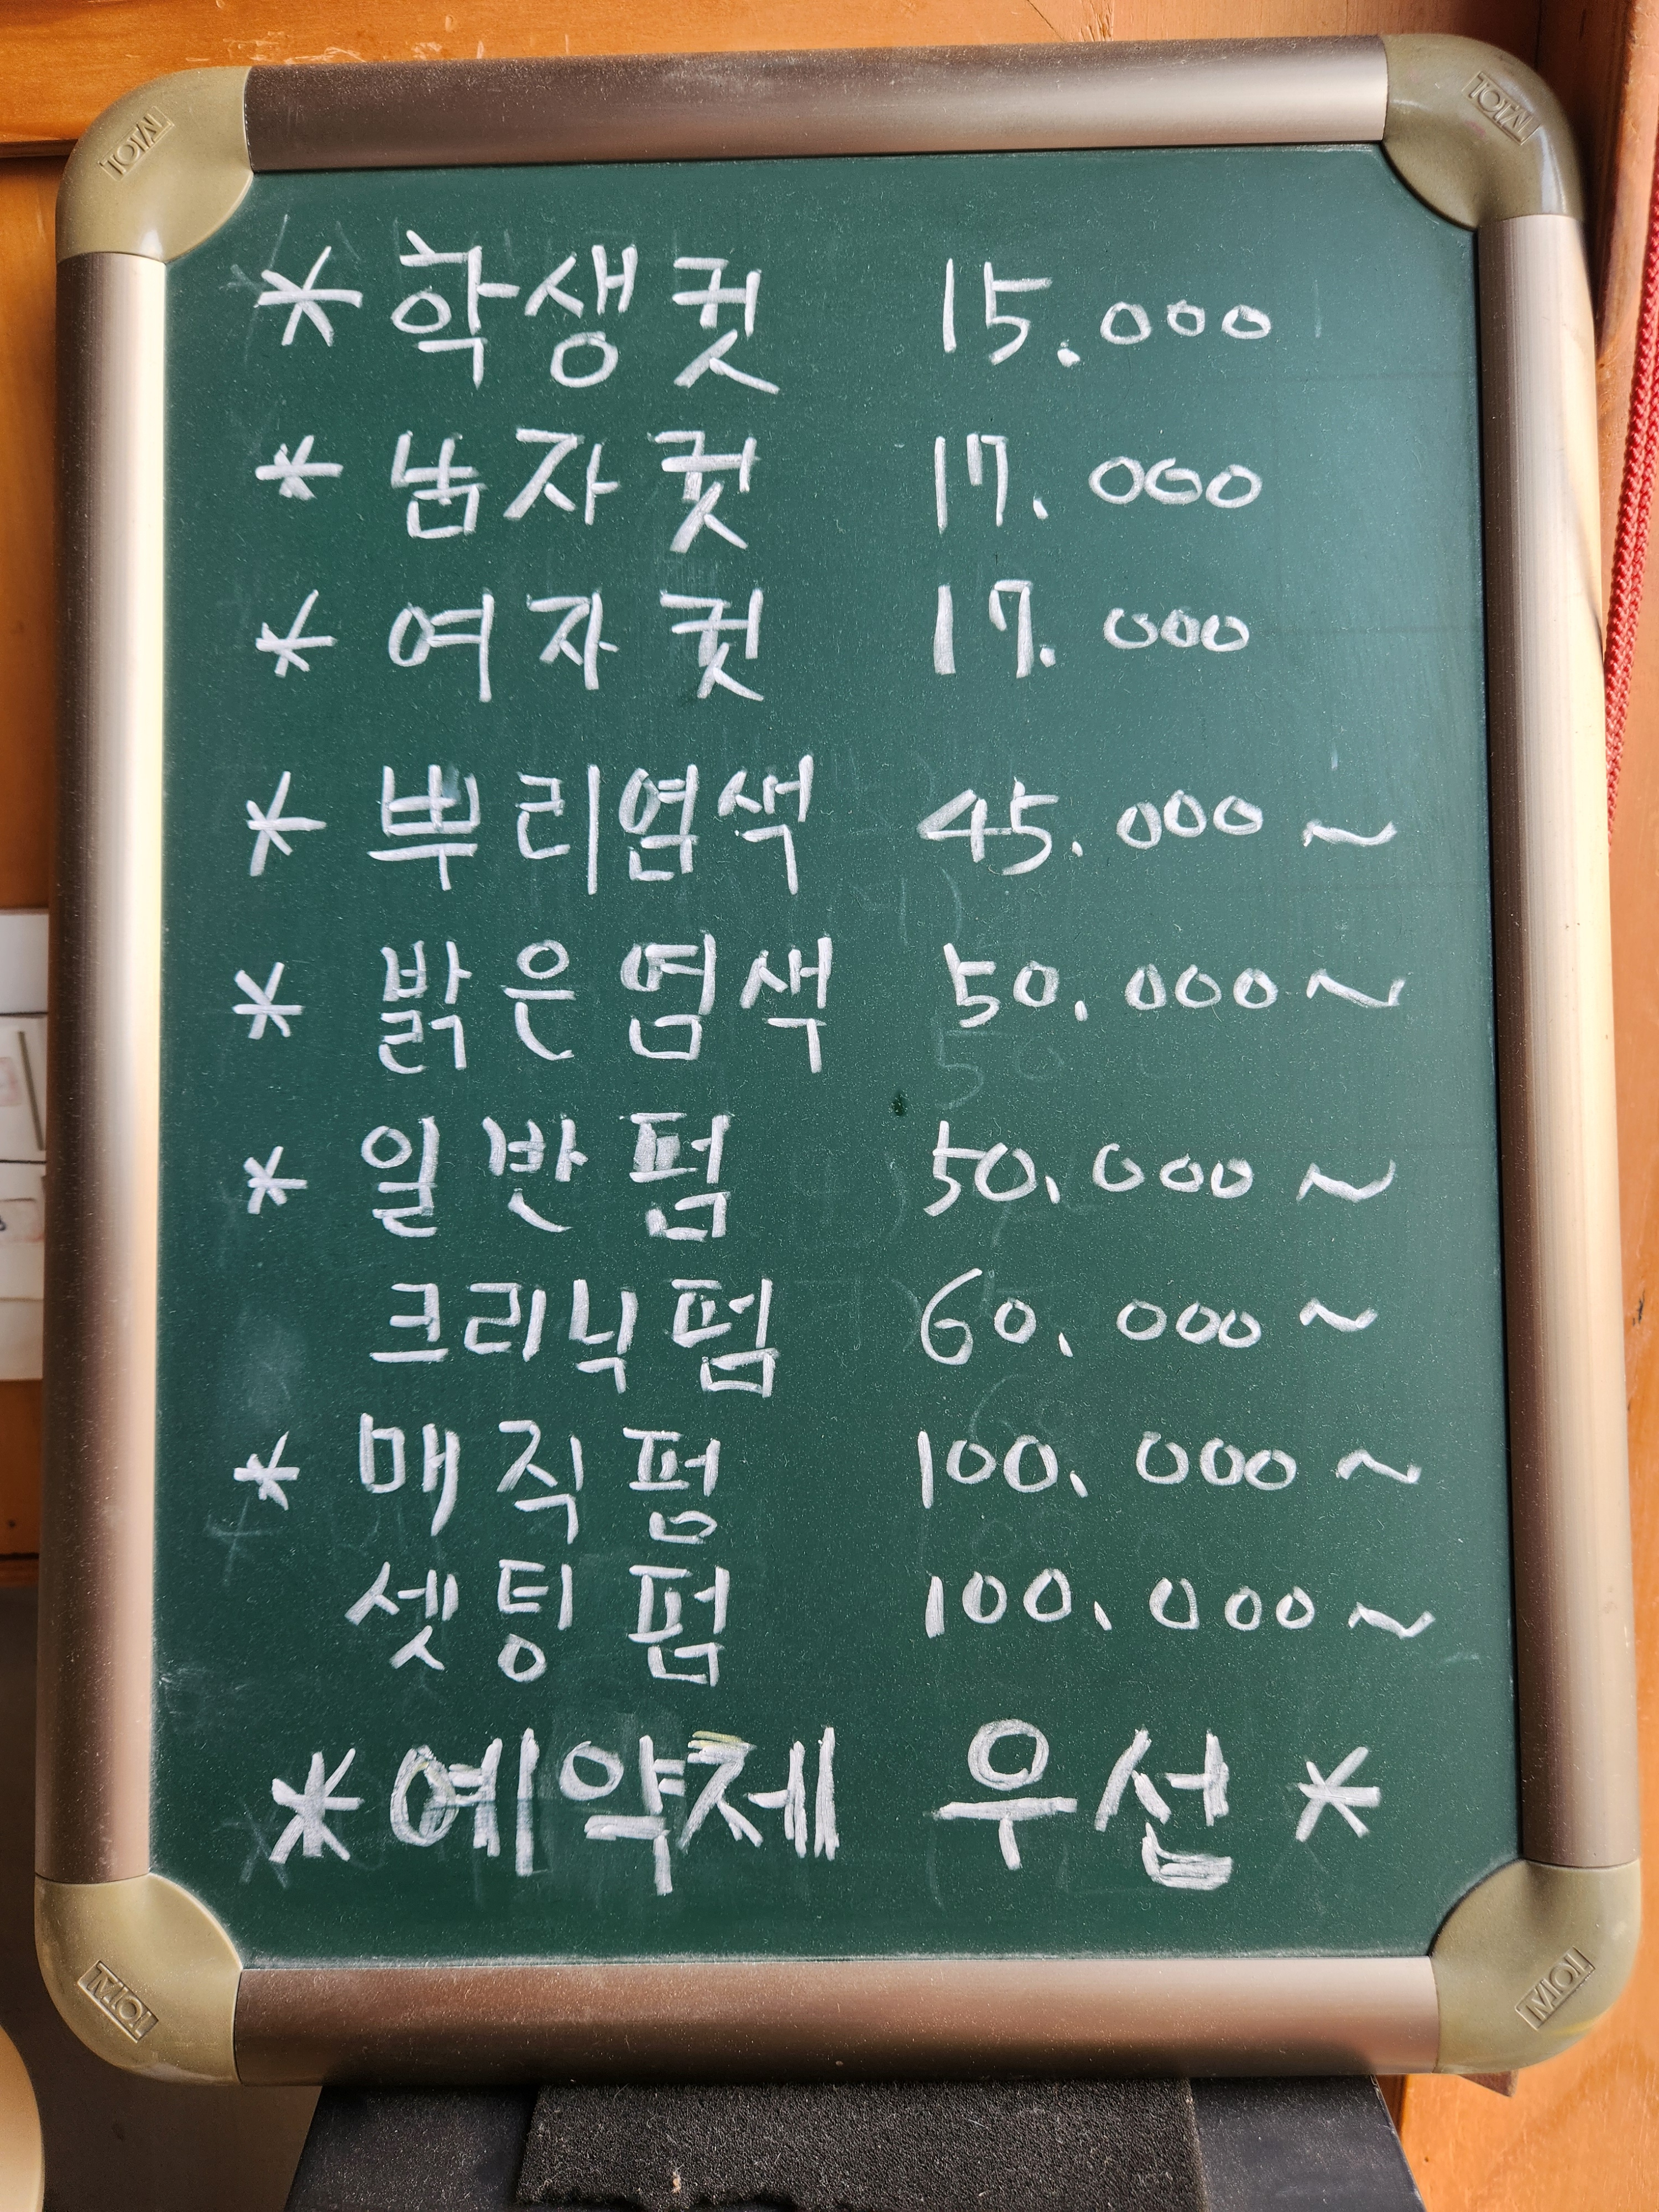 * 학생컷 15.000
* 남자컷 17.000
* 여자컷 17.000
* 뿌리염색 45.000 ~
* 밝은염색 50.000 ~
* 일반펌 50.000 ~
크리닉펌 60.000 ~
* 매직펌 100.000 ~
셋팅펌 100.000 ~
* 예약제 우선 *